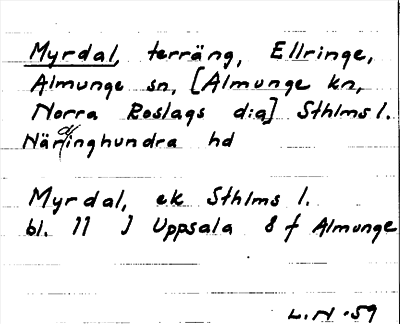 Myrdal, terräng, Ellringe,
Almunge sn, [Almunge kn,
Norra Roslags d:a] Sthlms l.
Närdinghundra hd
Myrdal, ek Sthlms l.
bl. 11 J Uppsala 8 f Almunge
L.N -59